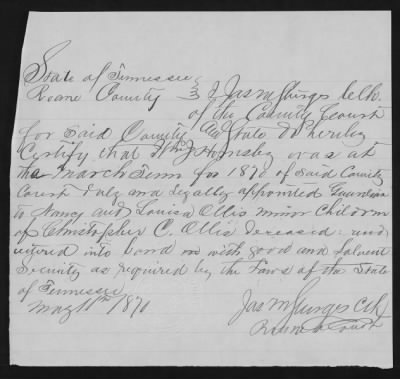 State of Tennessee
Roane County } I Jas M Sturges Clk.
of the County Court
for said County and State do hereby
Certify that Wm J Hornsby was at
the March Term for 1870 of said County
Court duly and legally appointed Guardian
to Nancy and Louisa Ollis minor children
of Christopher C. Ollis deceased: and
entered into bond in with good and solvent
Security as required by the Laws of the State
of Tennessee
May 11th 1870
Jas M Sturges Clk
Roane Court